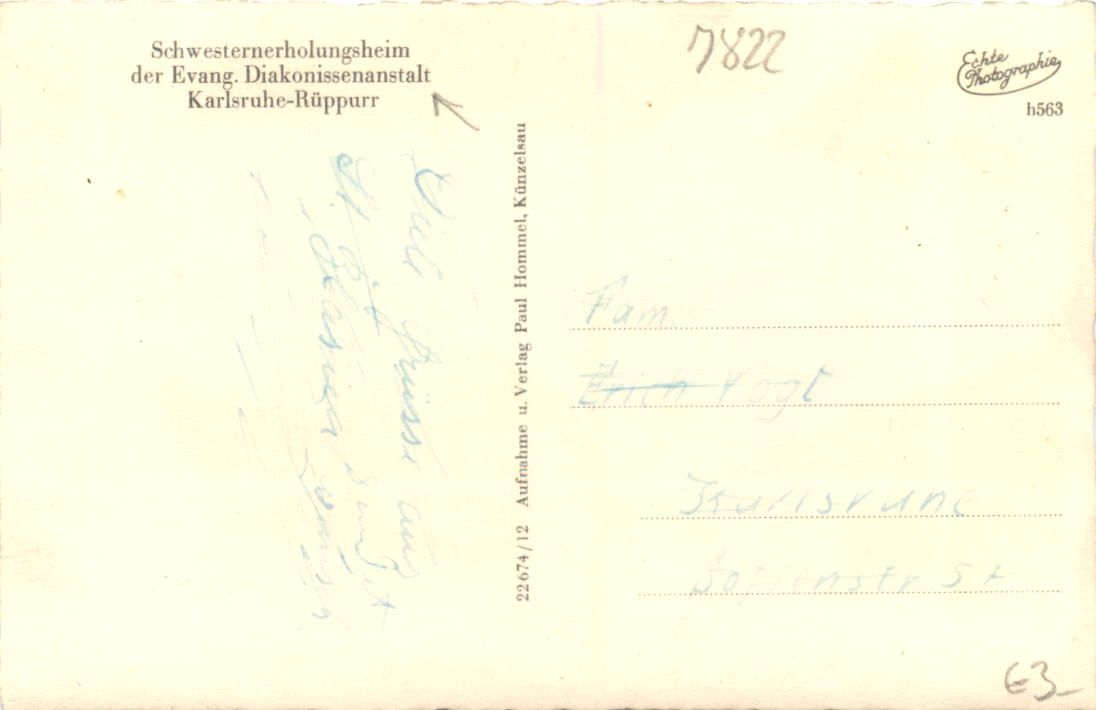 Schwesternerholungsheim
der Evang. Diakonissenanstalt
Karlsruhe-Rüppurr
7822
Echte
Photographie
h563
Viele Grüsse aus
St. Blasien sendet
22674/12 Aufnahme u. Verlag Paul Hommel, Künzelsau
Fam.
Erich Vogt
Karlsruhe
Sofienstr
€3-